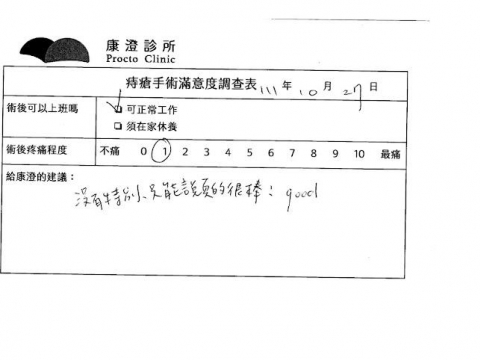 康澄診所
Procto Clinic
痔瘡手術滿意度調查表 111 年 10 月 27 日
術後可以上班嗎 ☑ 可正常工作
☐ 須在家休養
術後疼痛程度 不痛 0 1 2 3 4 5 6 7 8 9 10 最痛
給康澄的建議：
沒有特別、只能說真的很棒：good